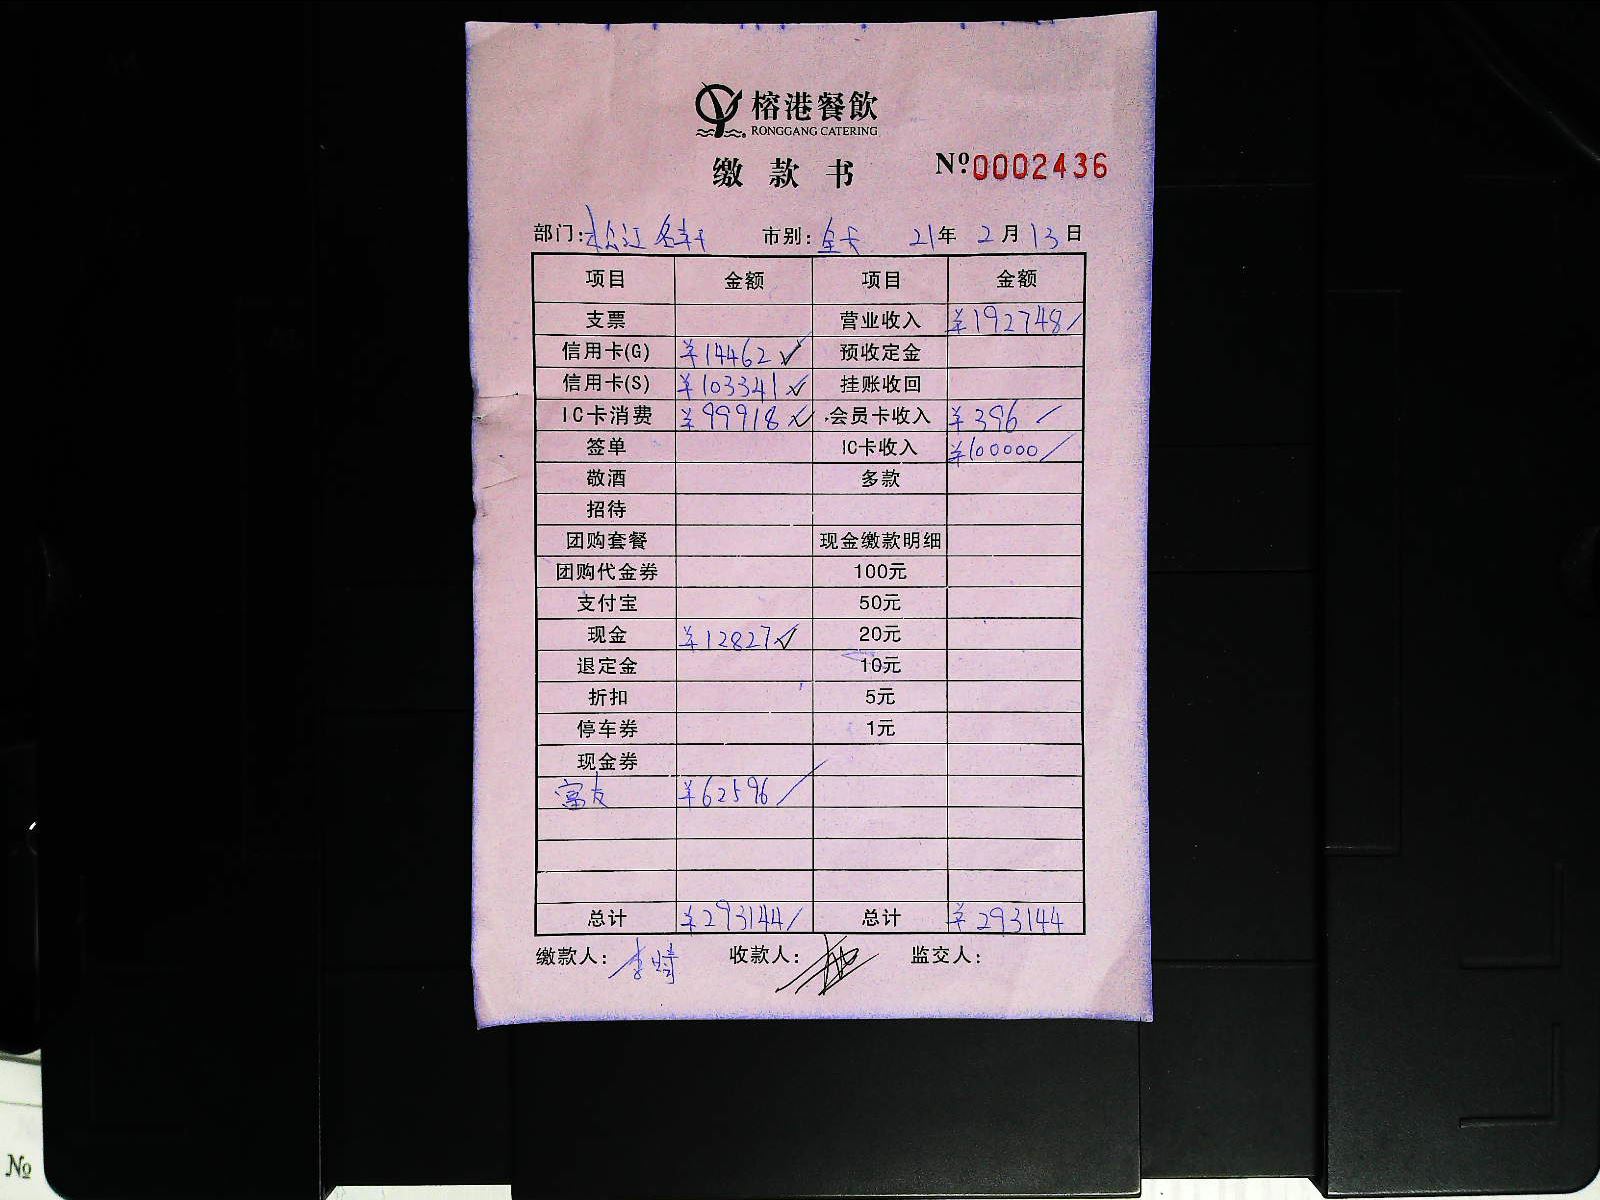 榕港餐飲
RONGGANG CATERING
缴款书 №0002436
部门:松江名轩 市别:全天 21年2月13日
项目 金额 项目 金额
支票 营业收入 ¥192748
信用卡(G) ¥14462 ✓ 预收定金
信用卡(S) ¥103341 ✓ 挂账收回
IC卡消费 ¥99918 ✓ 会员卡收入 ¥396
签单 IC卡收入 ¥100000
敬酒 多款
招待
团购套餐 现金缴款明细
团购代金券 100元
支付宝 50元
现金 ¥12827 ✓ 20元
退定金 10元
折扣 5元
停车券 1元
现金券
富友 ¥62596
总计 ¥293144 总计 ¥293144
缴款人: 收款人: 监交人:
№